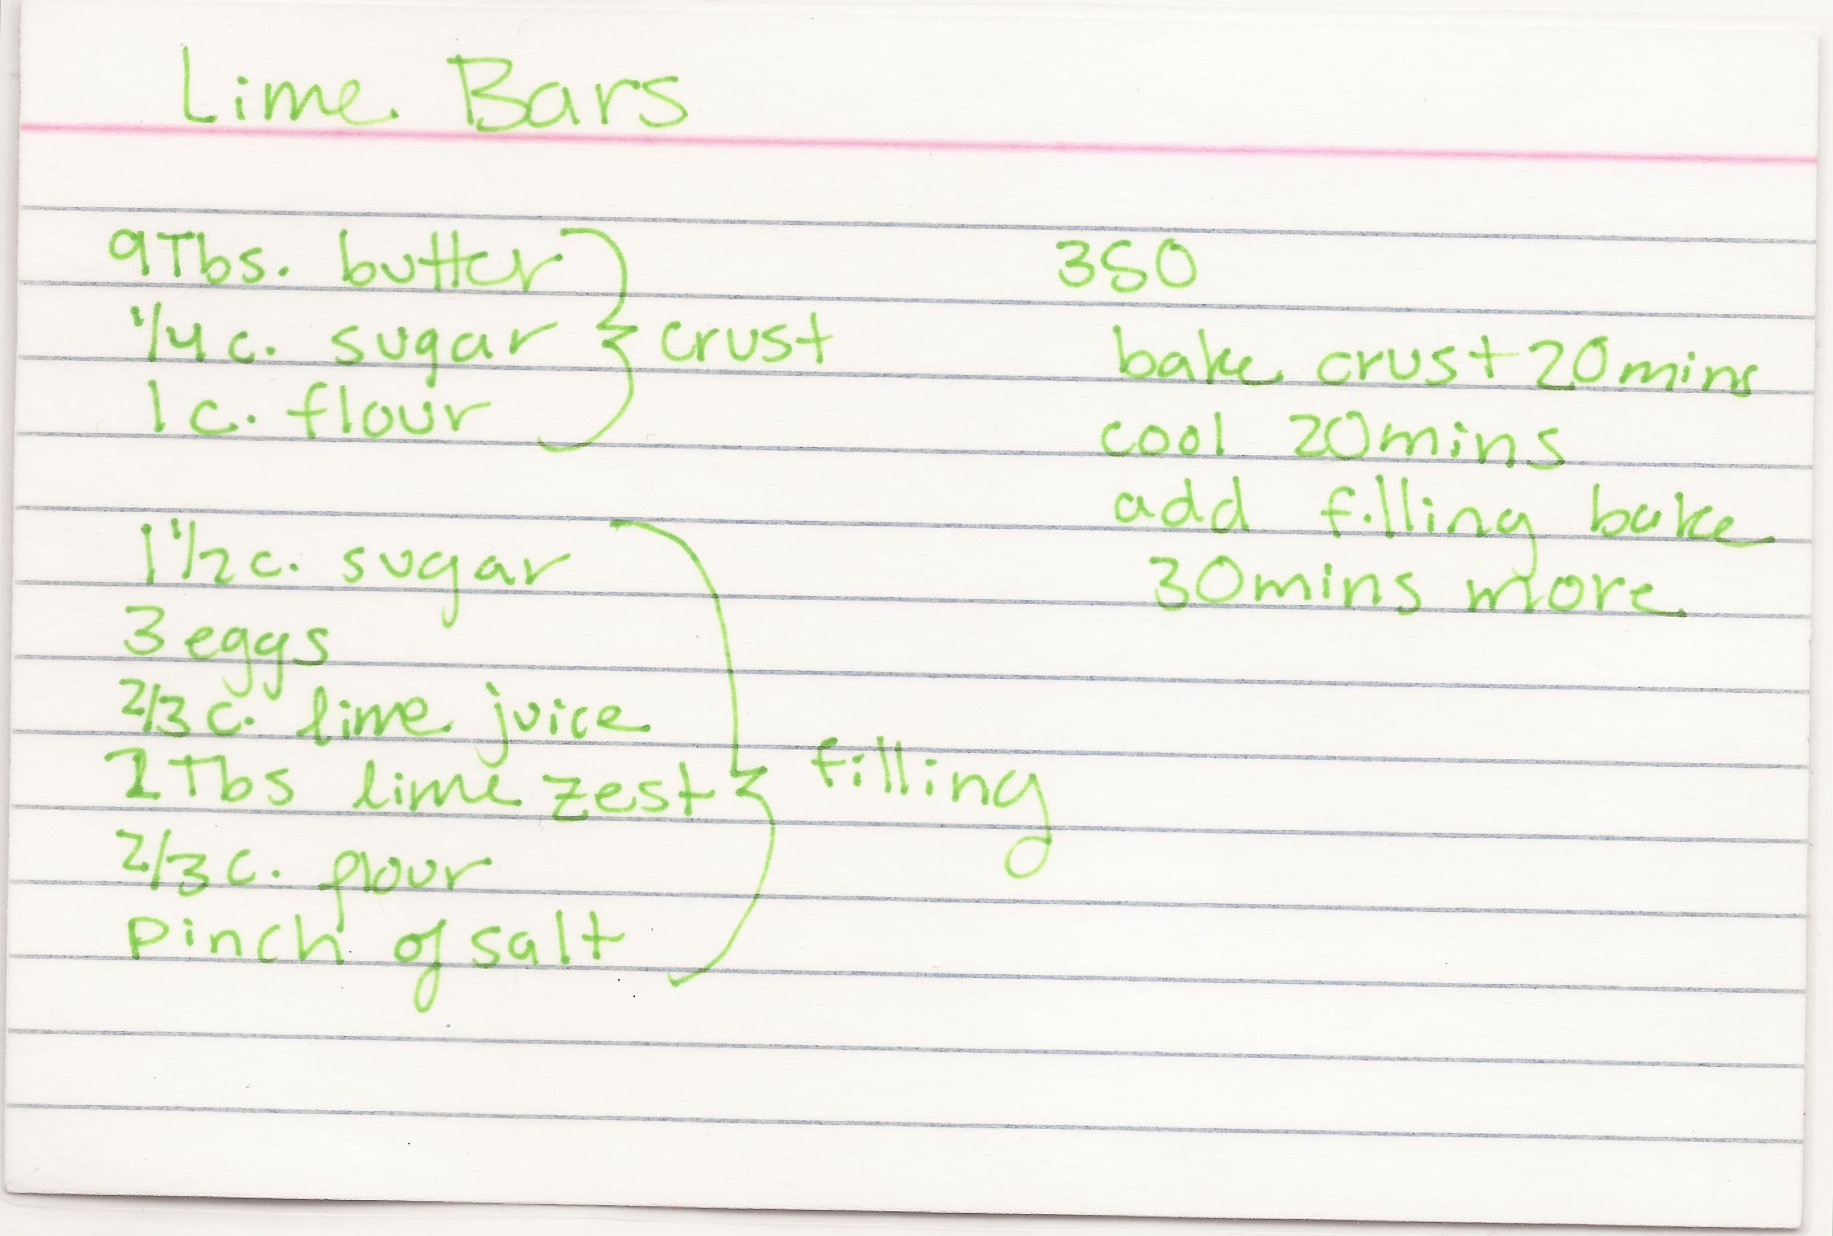 Lime Bars
9 Tbs. butter
1/4 c. sugar
1 c. flour
crust
1 1/2 c. sugar
3 eggs
2/3 c. lime juice
Tbs lime zest
2/3 c. flour
pinch of salt
filling
350
bake crust 20 mins
cool 20 mins
add filling bake
30 mins more